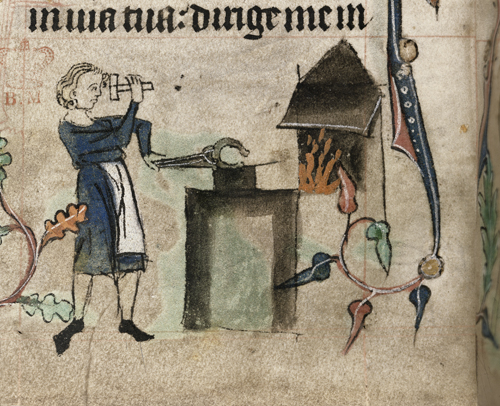 in uia tua: dirige me in
B M